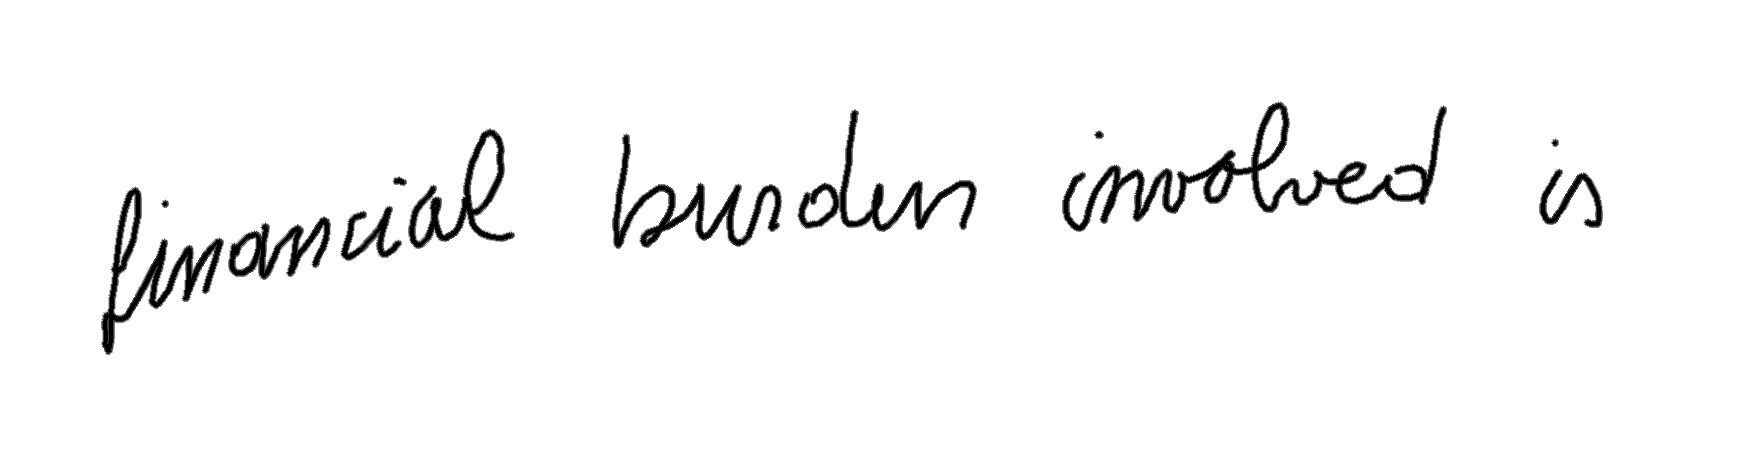 financial burden involved is